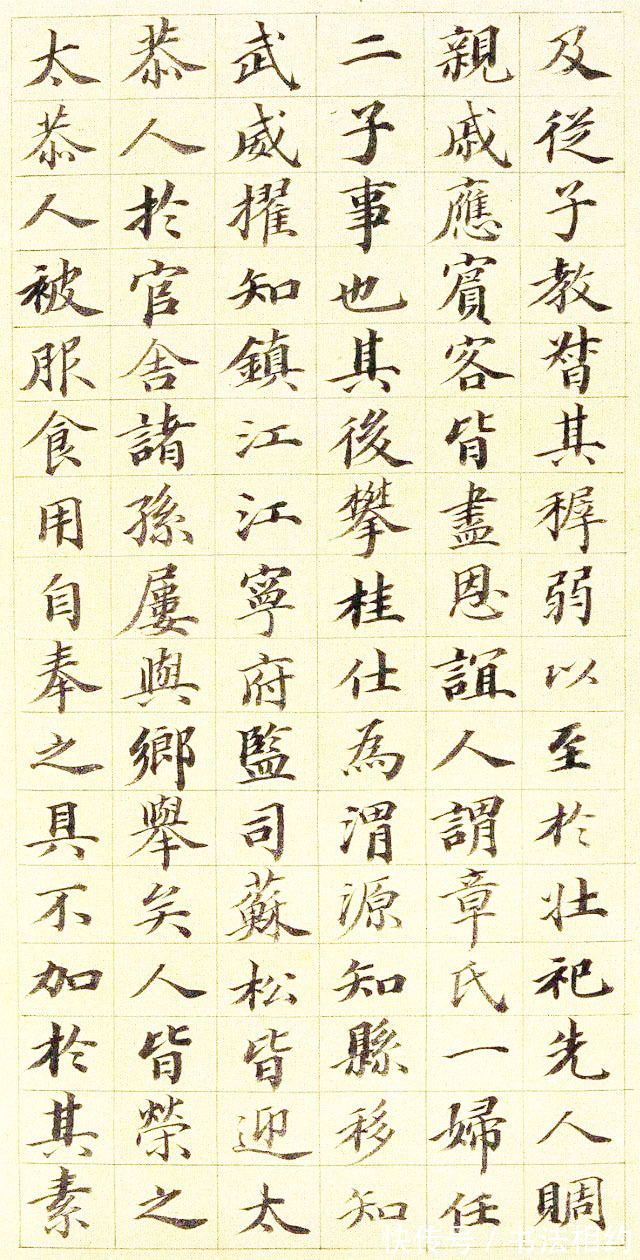 及從子教督其稺弱以至於壯祀先人賙
親戚應賓客皆盡恩誼人謂章氏一婦任
二子事也其後攀桂仕為渭源知縣移知
武威擢知鎮江江寧府監司蘇松皆迎太
恭人於官舍諸孫屢與鄉舉矣人皆榮之
太恭人被服食用自奉之具不加於其素
快传号/书法相约